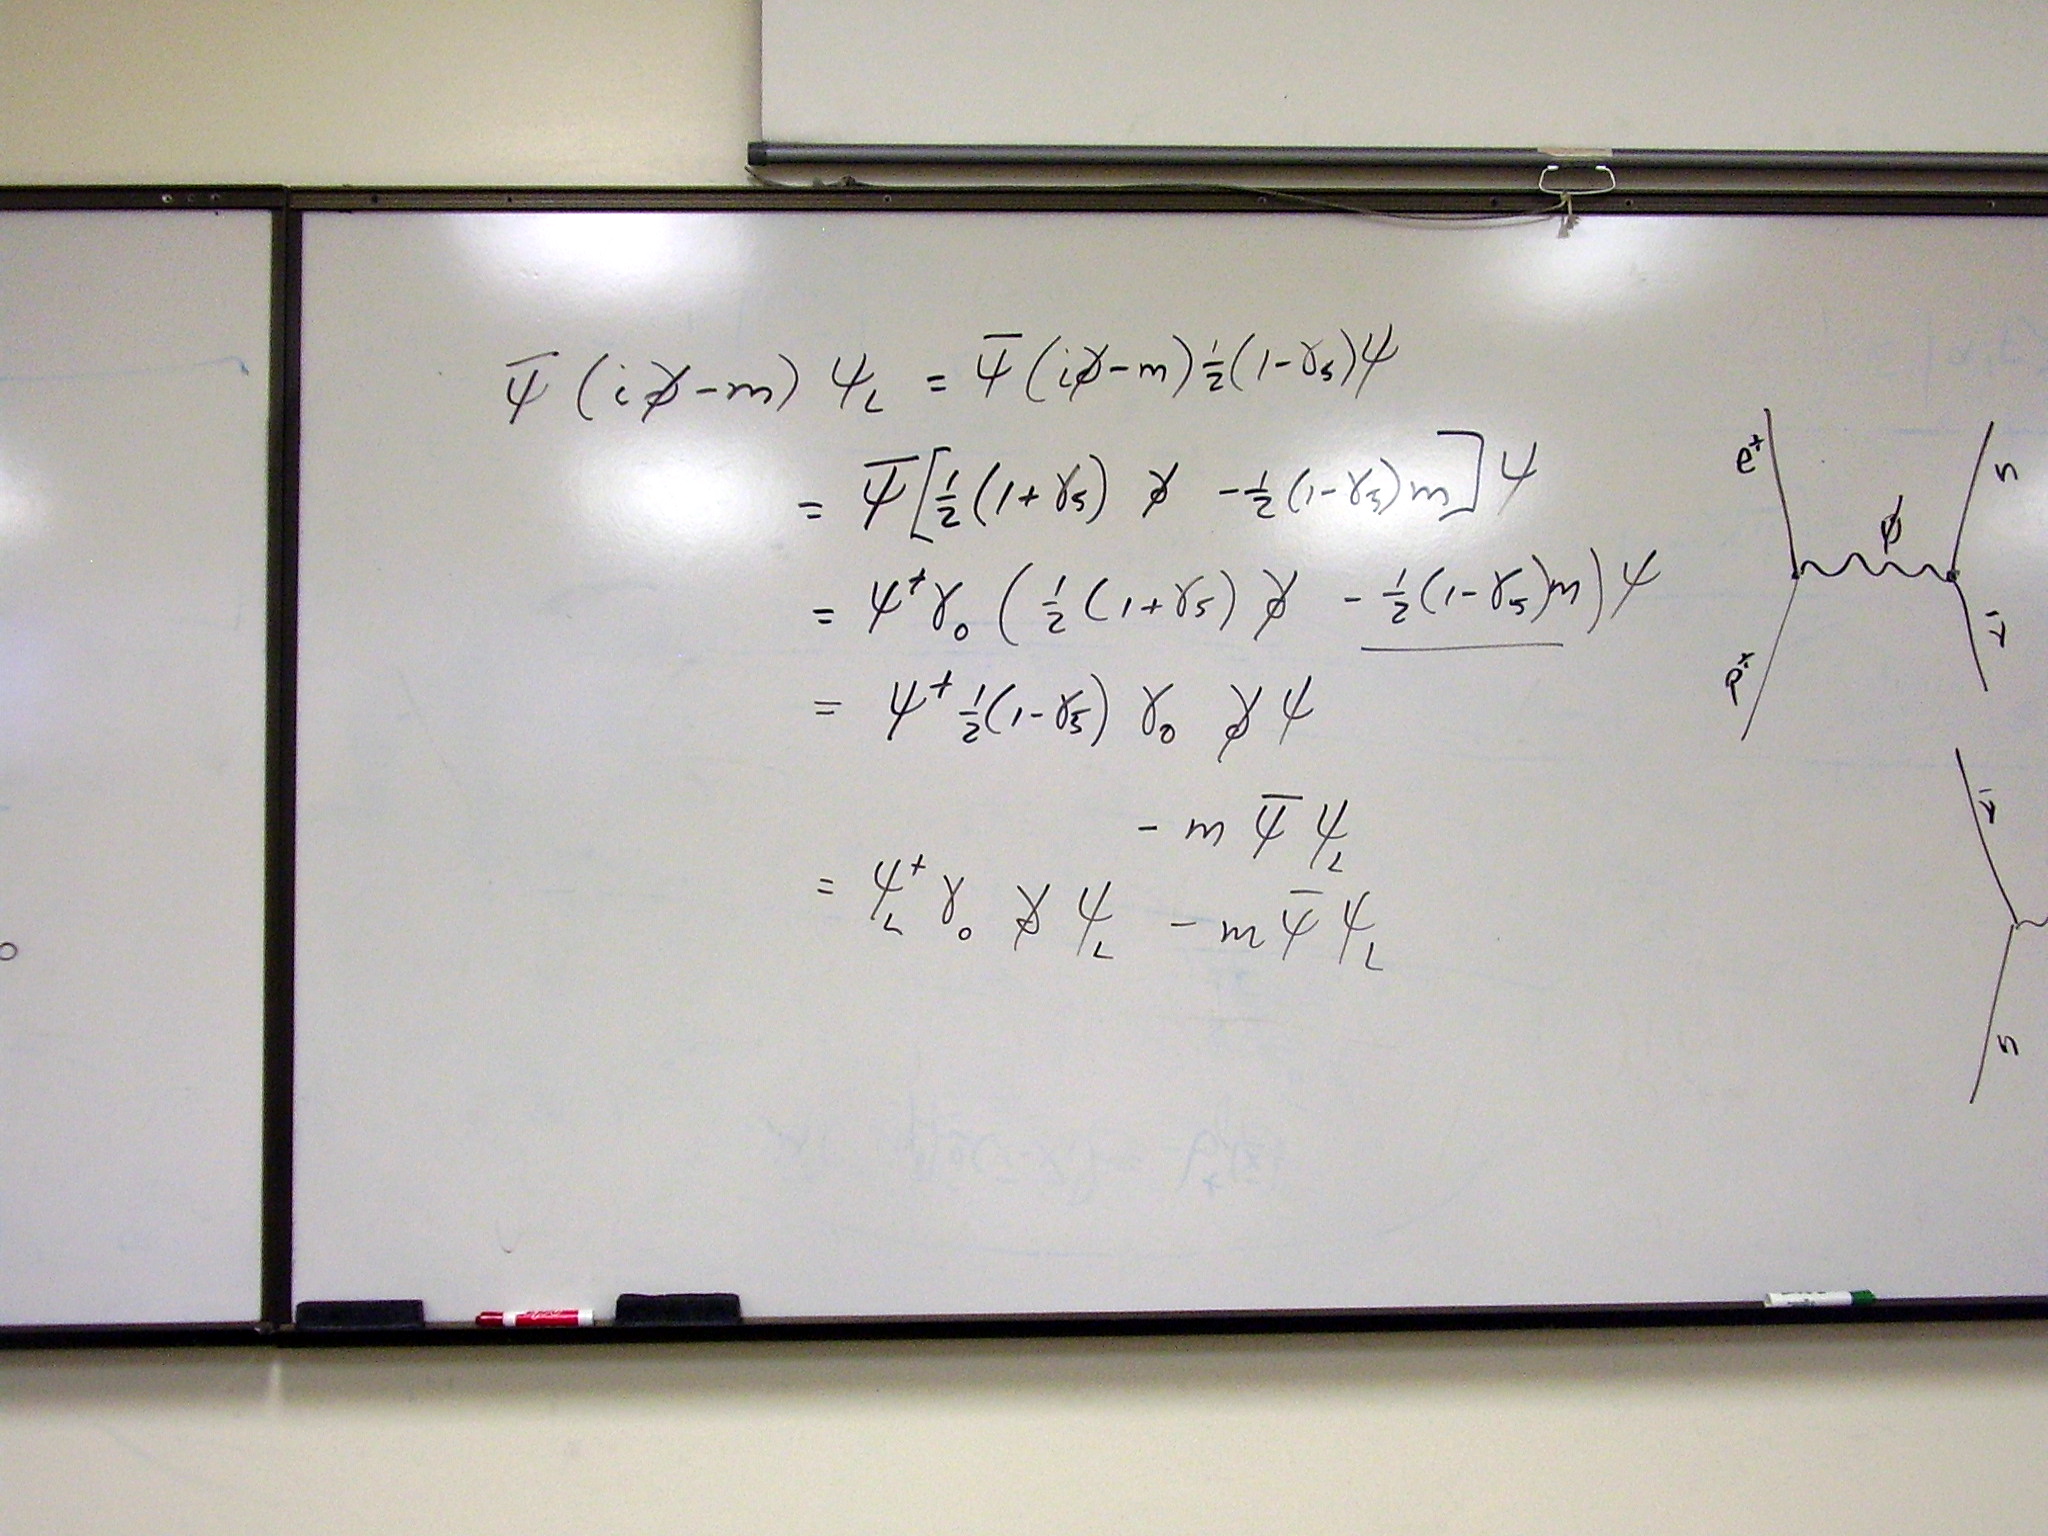 ψ̄ (i∂̸ - m) ψ_L = ψ̄ (i∂̸ - m) ½ (1 - γ₅) ψ
= ψ̄ [½ (1 + γ₅) ∂̸ - ½ (1 - γ₅) m] ψ
= ψ⁺ γ₀ (½ (1 + γ₅) ∂̸ - ½ (1 - γ₅) m) ψ
= ψ⁺ ½ (1 - γ₅) γ₀ ∂̸ ψ
- m ψ̄ ψ_L
= ψ_L⁺ γ₀ ∂̸ ψ_L - m ψ̄ ψ_L
e⁺
n
ϕ
n